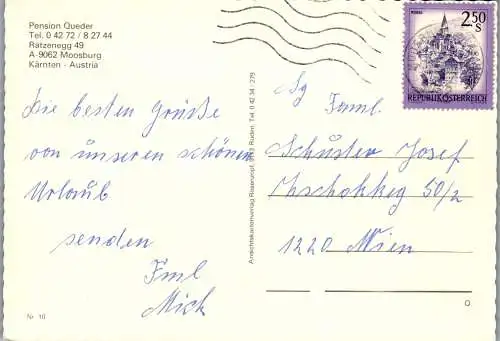 Pension Queder
Tel. 0 42 72 / 8 27 44
Ratzenegg 49
A-9062 Moosburg
Kärnten - Austria
MURAU
2.50
S
REPUBLIK ÖSTERREICH
Die besten Grüße
von unseren schönen
Urlaub
senden
Fml
Mick
Nr. 10
Ansichtskartenverlag Rücken, Tel. 0 42 34 / 279
Sg Faml.
Schuster Josef
Zschokkeg 50/2
1220 Wien
O.